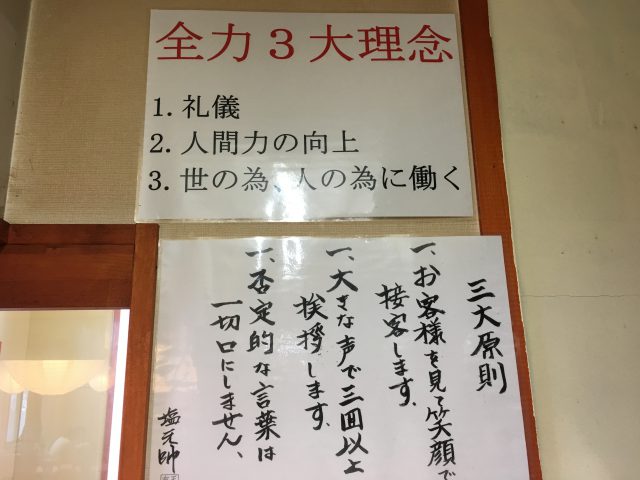 全力3大理念
1. 礼儀
2. 人間力の向上
3. 世の為、人の為に働く
三大原則
一、お客様を見て笑顔で
接客します。
一、大きな声で三回以上
挨拶します。
一、否定的な言葉は
一切口にしません、
塩元帥